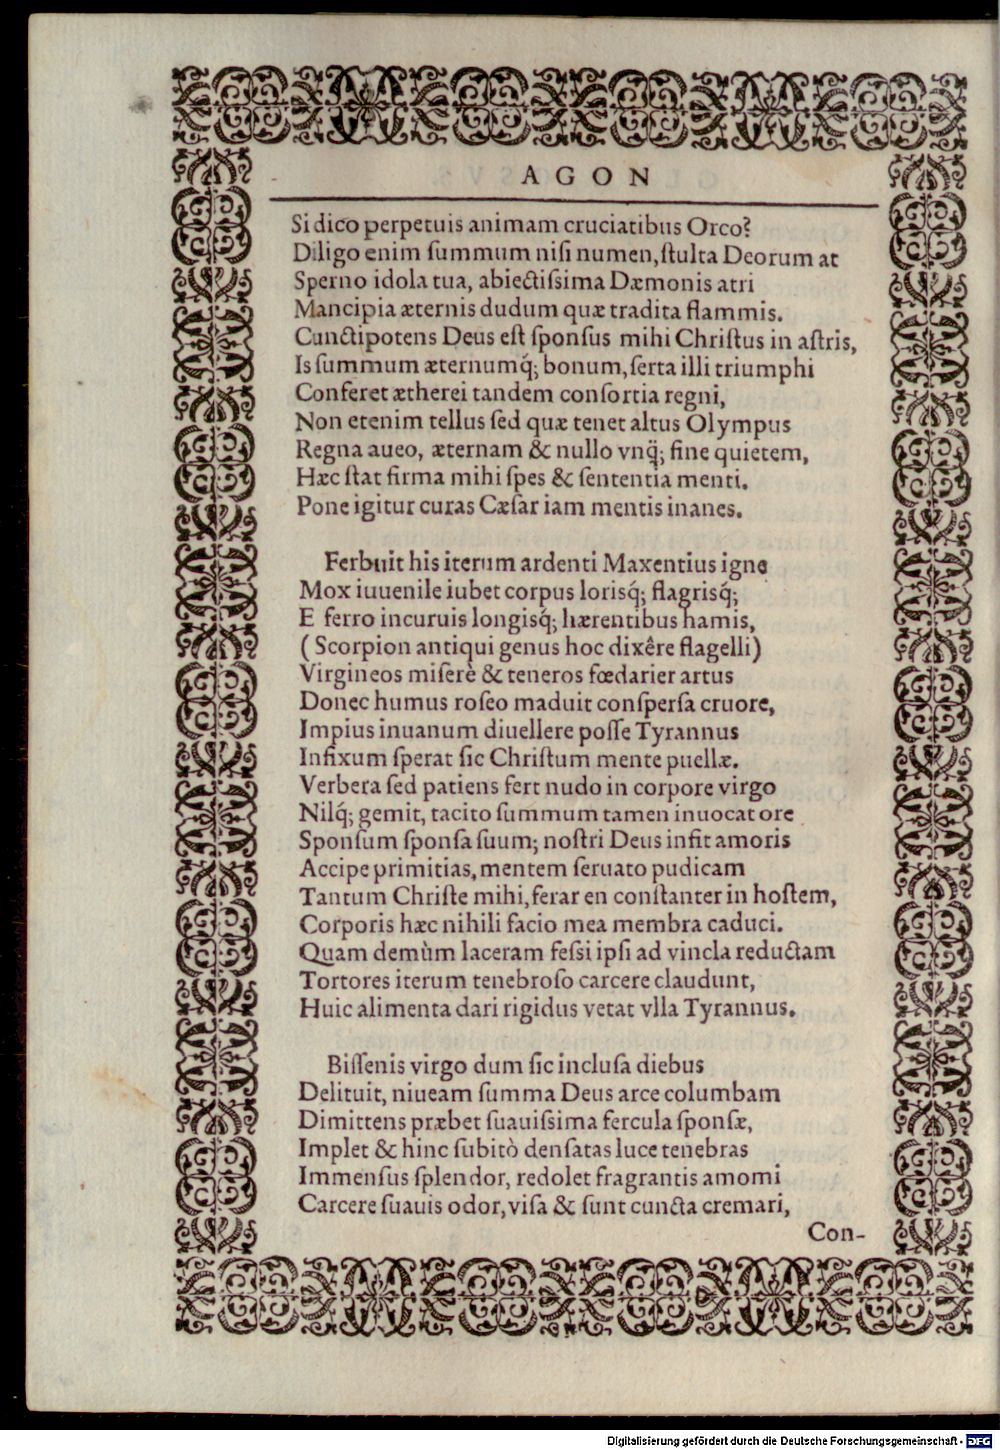 AGON
Si dico perpetuis animam cruciatibus Orco?
Diligo enim ſummum niſi numen, ſtulta Deorum at
Sperno idola tua, abiectiſsima Dæmonis atri
Mancipia æternis dudum quæ tradita flammis.
Cunctipotens Deus eſt ſponſus mihi Chriſtus in aſtris,
Is ſummum æternumq́; bonum, ſerta illi triumphi
Conferet ætherei tandem conſortia regni,
Non etenim tellus ſed quæ tenet altus Olympus
Regna aueo, æternam & nullo vnq̈; fine quietem,
Hæc ſtat firma mihi ſpes & ſententia menti.
Pone igitur curas Cæſar iam mentis inanes.
Ferbuit his iterum ardenti Maxentius igne
Mox iuuenile iubet corpus lorisq́; flagrisq́;
E ferro incuruis longisq́; hærentibus hamis,
(Scorpion antiqui genus hoc dixêre flagelli)
Virgineos miſerè & teneros fœdarier artus
Donec humus roſeo maduit conſperſa cruore,
Impius inuanum diuellere poſſe Tyrannus
Infixum ſperat ſic Chriſtum mente puellæ.
Verbera ſed patiens fert nudo in corpore virgo
Nilq́; gemit, tacito ſummum tamen inuocat ore
Sponſum ſponſa ſuum; noſtri Deus infit amoris
Accipe primitias, mentem ſeruato pudicam
Tantum Chriſte mihi, ferar en conſtanter in hoſtem,
Corporis hæc nihili facio mea membra caduci.
Quam demùm laceram feſsi ipſi ad vincla reductam
Tortores iterum tenebroſo carcere claudunt,
Huic alimenta dari rigidus vetat vlla Tyrannus.
Biſſenis virgo dum ſic incluſa diebus
Delituit, niueam ſumma Deus arce columbam
Dimittens præbet ſuauiſsima fercula ſponſæ,
Implet & hinc ſubitò denſatas luce tenebras
Immenſus ſplendor, redolet fragrantis amomi
Carcere ſuauis odor, viſa & ſunt cuncta cremari,
Con-
Digitalisierung gefördert durch die Deutsche Forschungsgemeinschaft - DFG